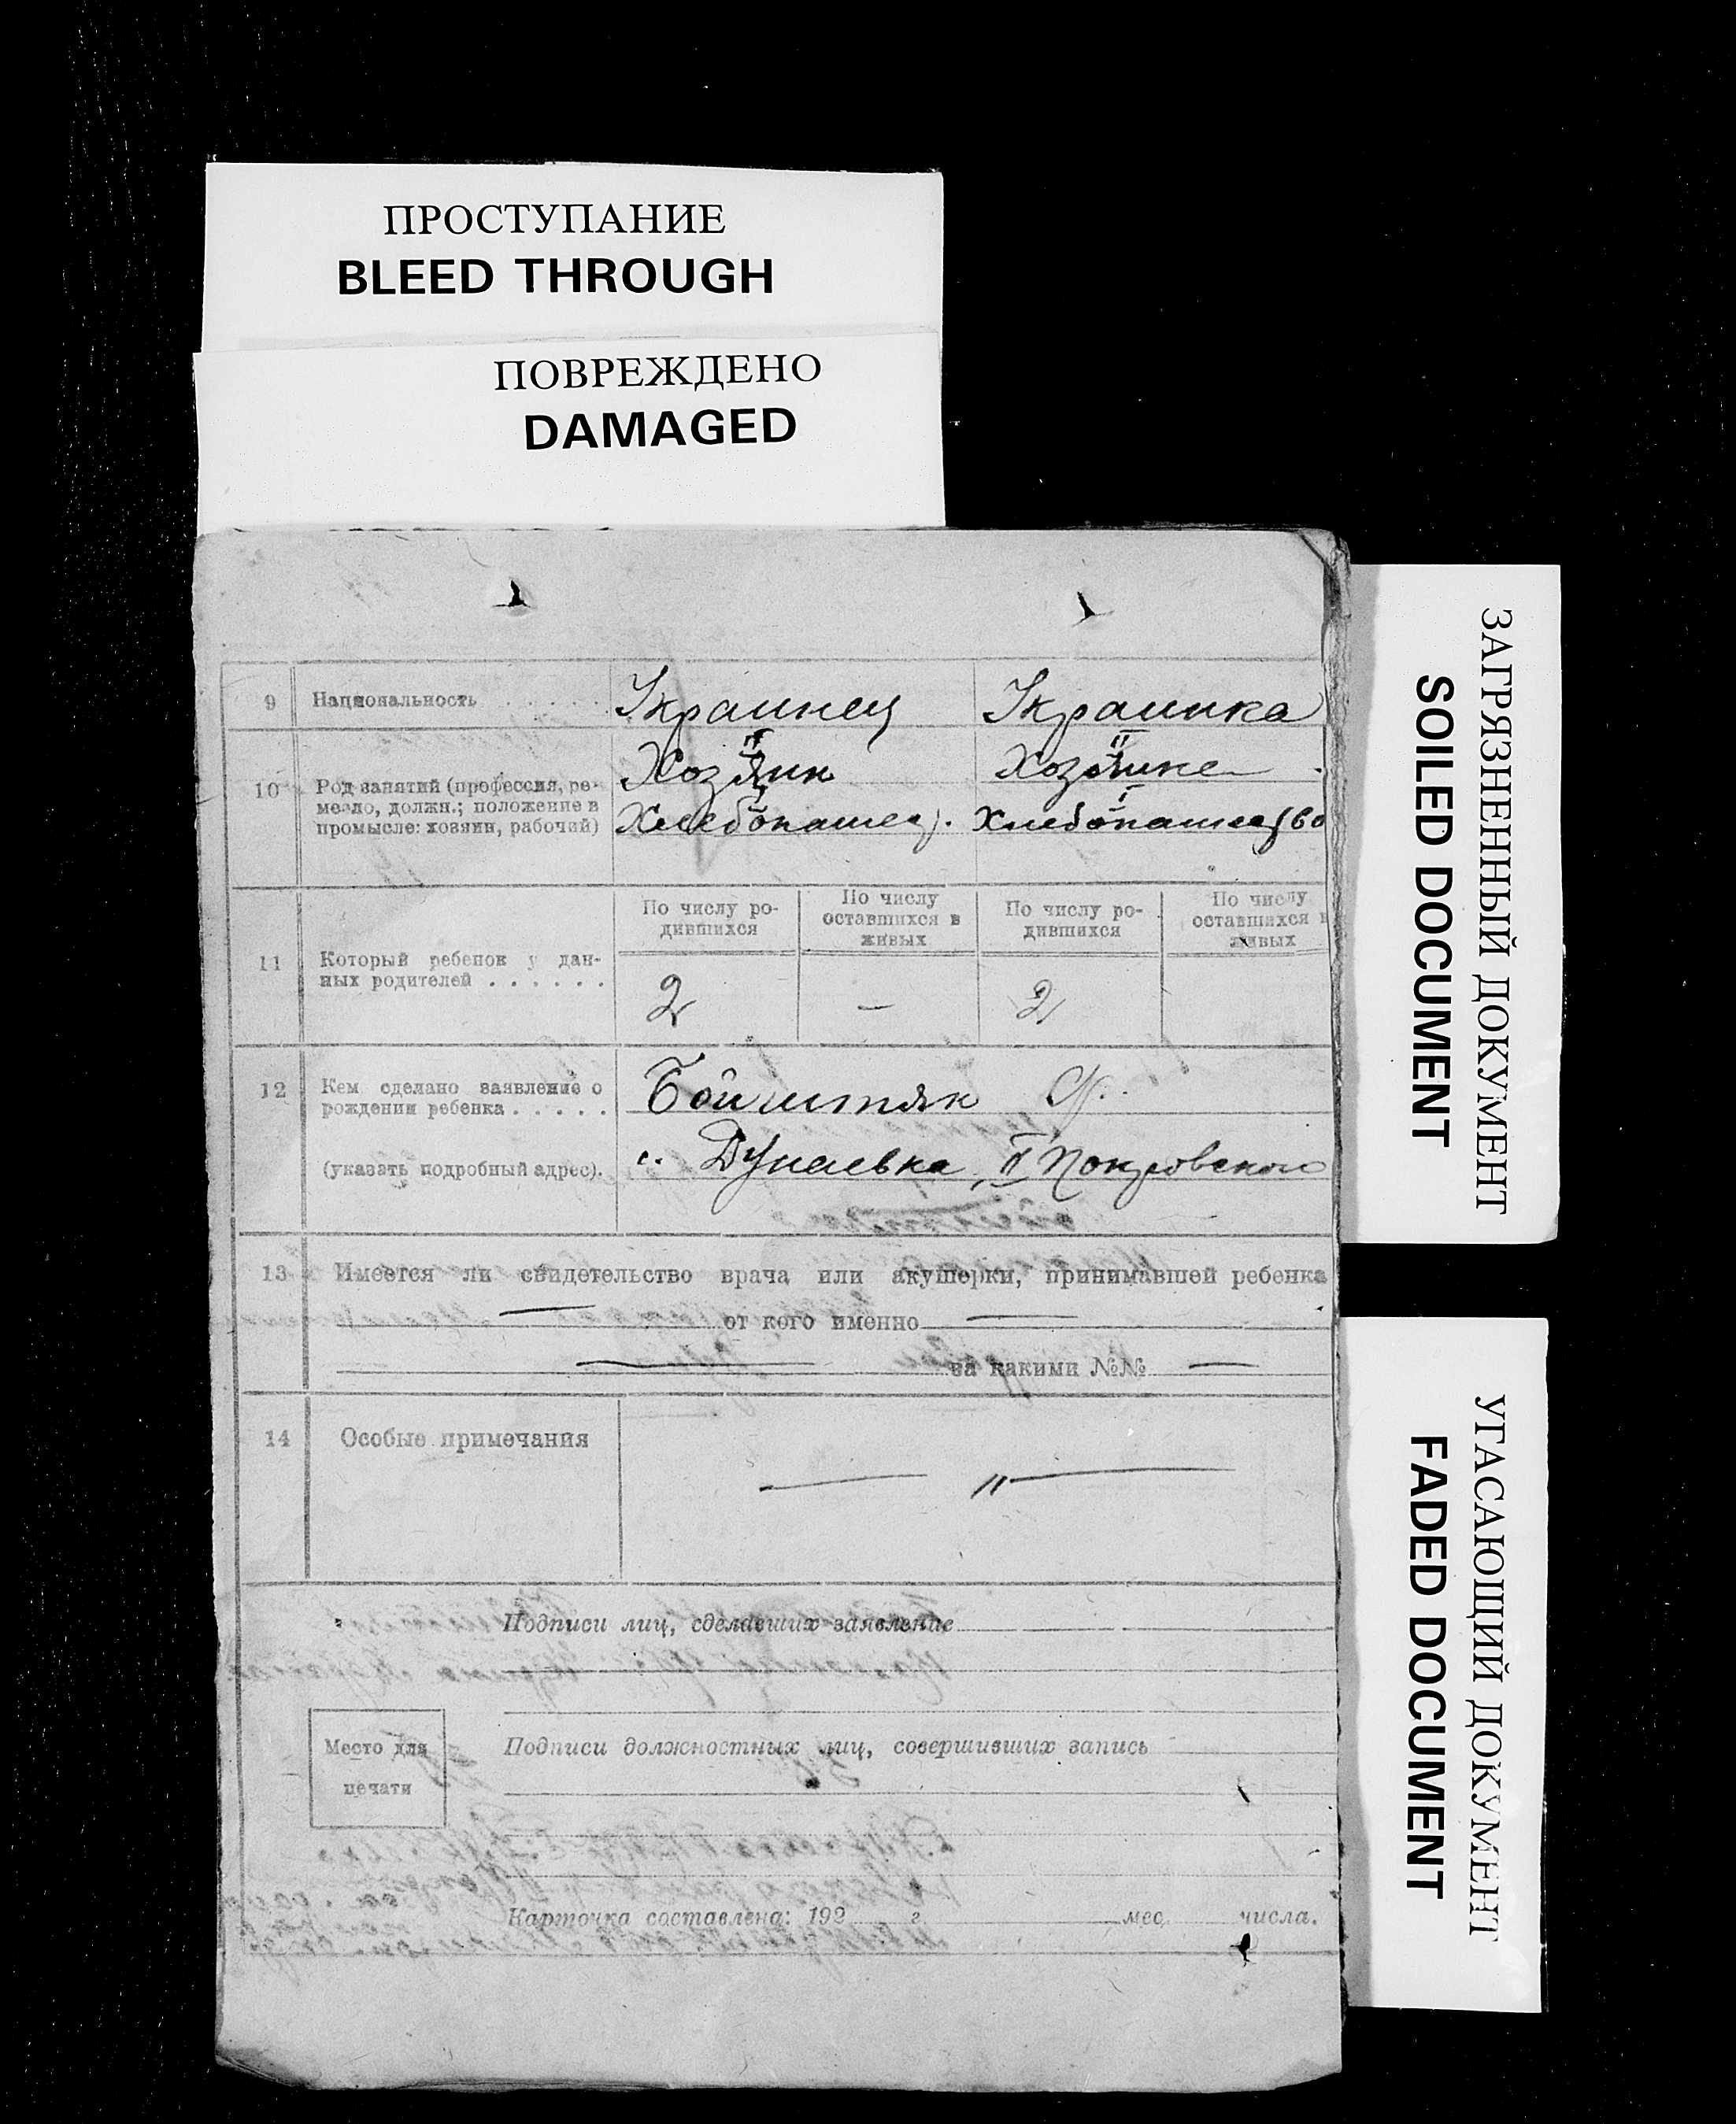 ПРОСТУПАНИЕ
BLEED THROUGH
ПОВРЕЖДЕНО
DAMAGED
ЗАГРЯЗНЕННЫЙ ДОКУМЕНТ
SOILED DOCUMENT
УГАСАЮЩИЙ ДОКУМЕНТ
FADED DOCUMENT
9 Национальность . . . . . . Украинец Украинка
10 Род занятий (профессия, ре-
месло, должн.; положение в
промысле: хозяин, рабочий)
II II
Хозяин Хозяйке
I
Хлебопашец. Хлебопашество
11 Который ребенок у дан-
ных родителей . . . . . .
По числу ро-
дившихся
По числу
оставшихся в
живых
По числу ро-
дившихся
По числу
оставшихся в
живых
2 — 2
12 Кем сделано заявление о
рождении ребенка . . . . .
Бойштян
(указать подробный адрес).
Дунаевка, II Покровского
13 Имеется ли свидетельство врача или акушерки, принимавшей ребенка
— от кого именно —
— за какими №№ —
14 Особые примечания — " —
Подписи лиц, сделавших заявление
Место для
печати
Подписи должностных лиц, совершивших запись
Карточка составлена: 192 г. мес. числа.